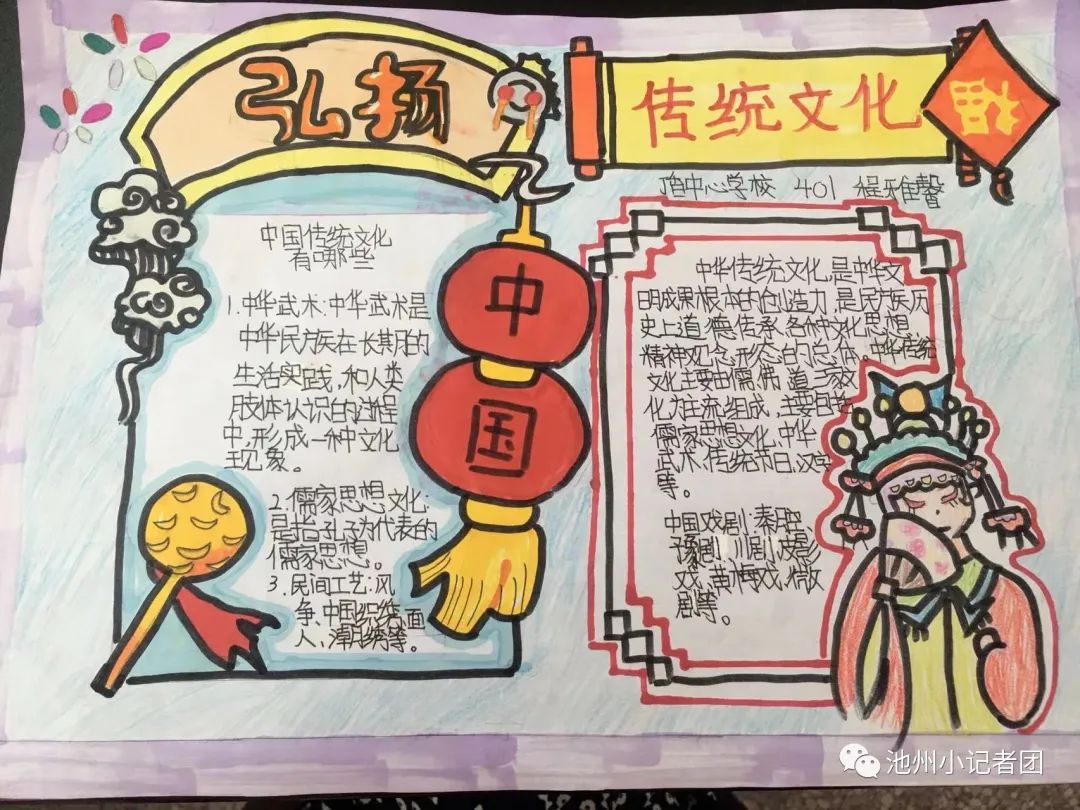 弘扬
传统文化
福
中心学校 401 程雅馨
中国传统文化
有哪些
1.中华武术:中华武术是
中华民族在长期的
生活实践,和人类
肢体认识的过程
中,形成一种文化
现象。
2.儒家思想文化:
是指孔子为代表的
儒家思想。
3.民间工艺:风
争、中国织绣、面
人、潮绣等。
中国
中华传统文化,是中华文
明成果根本的创造力,是民族历
史上道德传承、各种文化思想、
精神观念形态的总体。中华传统
文化主要由儒、佛、道三家文
化为主流组成,主要包括
儒家思想文化、中华
武术、传统节日、汉字
等。
中国戏剧:秦腔、
豫剧、川剧、皮影
戏、黄梅戏、徽
剧等。
池州小记者团